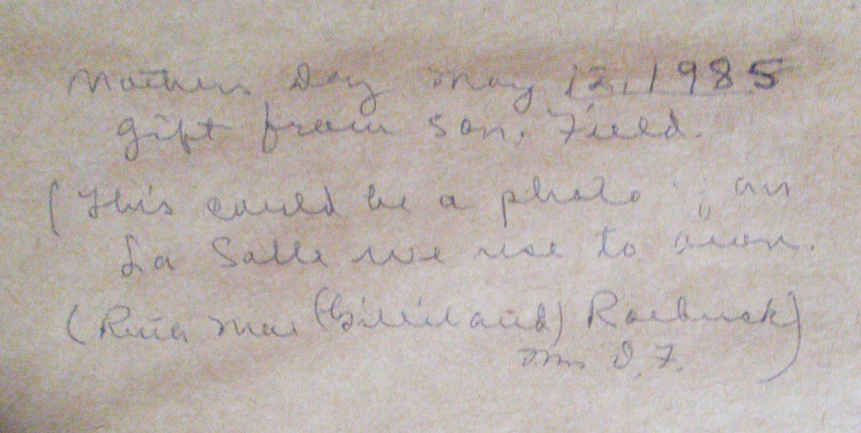 Mothers Day May 12, 1985
gift from son, Field.
(This could be a photo
La Salle we use to own.
( Mae (Gilliland) Roebuck)
Mrs